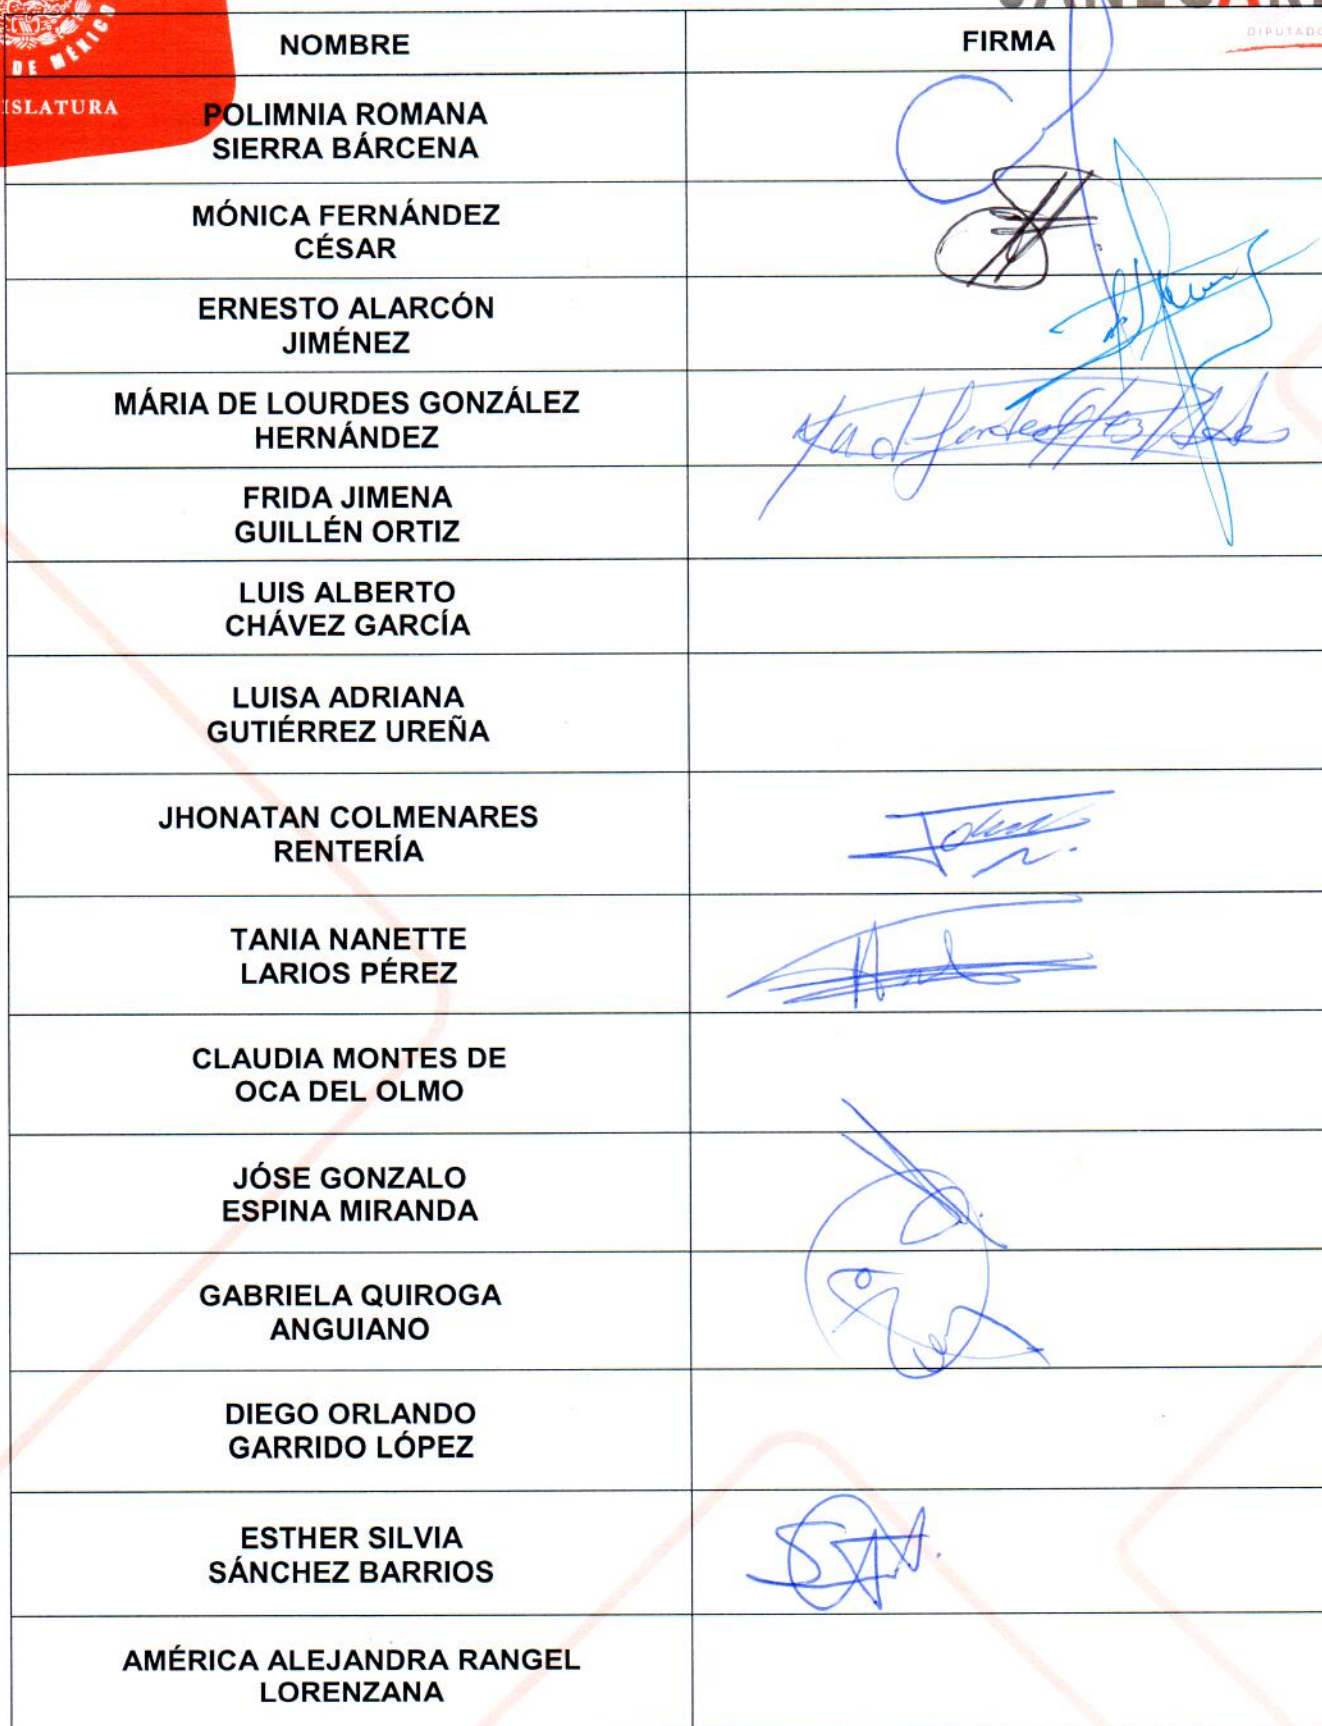 DE MÉXICO
ISLATURA
DIPUTADO
NOMBRE
FIRMA
POLIMNIA ROMANA
SIERRA BÁRCENA
MÓNICA FERNÁNDEZ
CÉSAR
ERNESTO ALARCÓN
JIMÉNEZ
MÁRIA DE LOURDES GONZÁLEZ
HERNÁNDEZ
FRIDA JIMENA
GUILLÉN ORTIZ
LUIS ALBERTO
CHÁVEZ GARCÍA
LUISA ADRIANA
GUTIÉRREZ UREÑA
JHONATAN COLMENARES
RENTERÍA
TANIA NANETTE
LARIOS PÉREZ
CLAUDIA MONTES DE
OCA DEL OLMO
JÓSE GONZALO
ESPINA MIRANDA
GABRIELA QUIROGA
ANGUIANO
DIEGO ORLANDO
GARRIDO LÓPEZ
ESTHER SILVIA
SÁNCHEZ BARRIOS
AMÉRICA ALEJANDRA RANGEL
LORENZANA